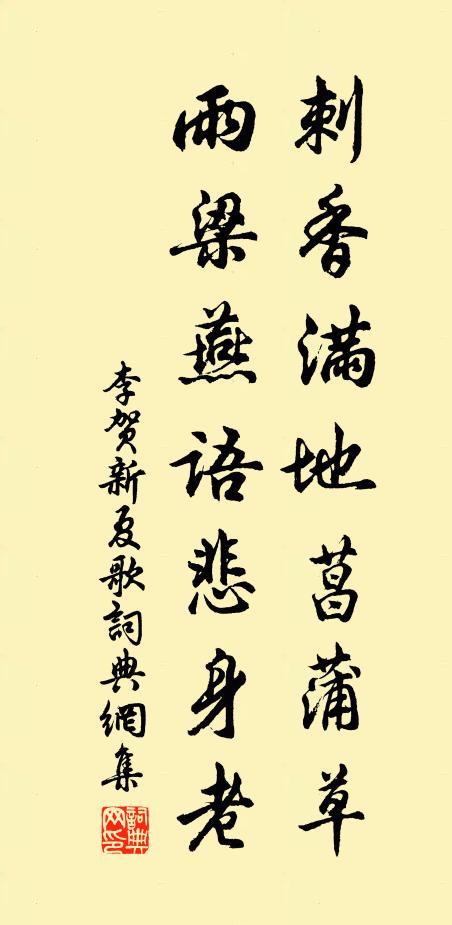 刺香滿地菖蒲草
雨梁燕語悲身老
李贺新夏歌詞典網集
詞典网印